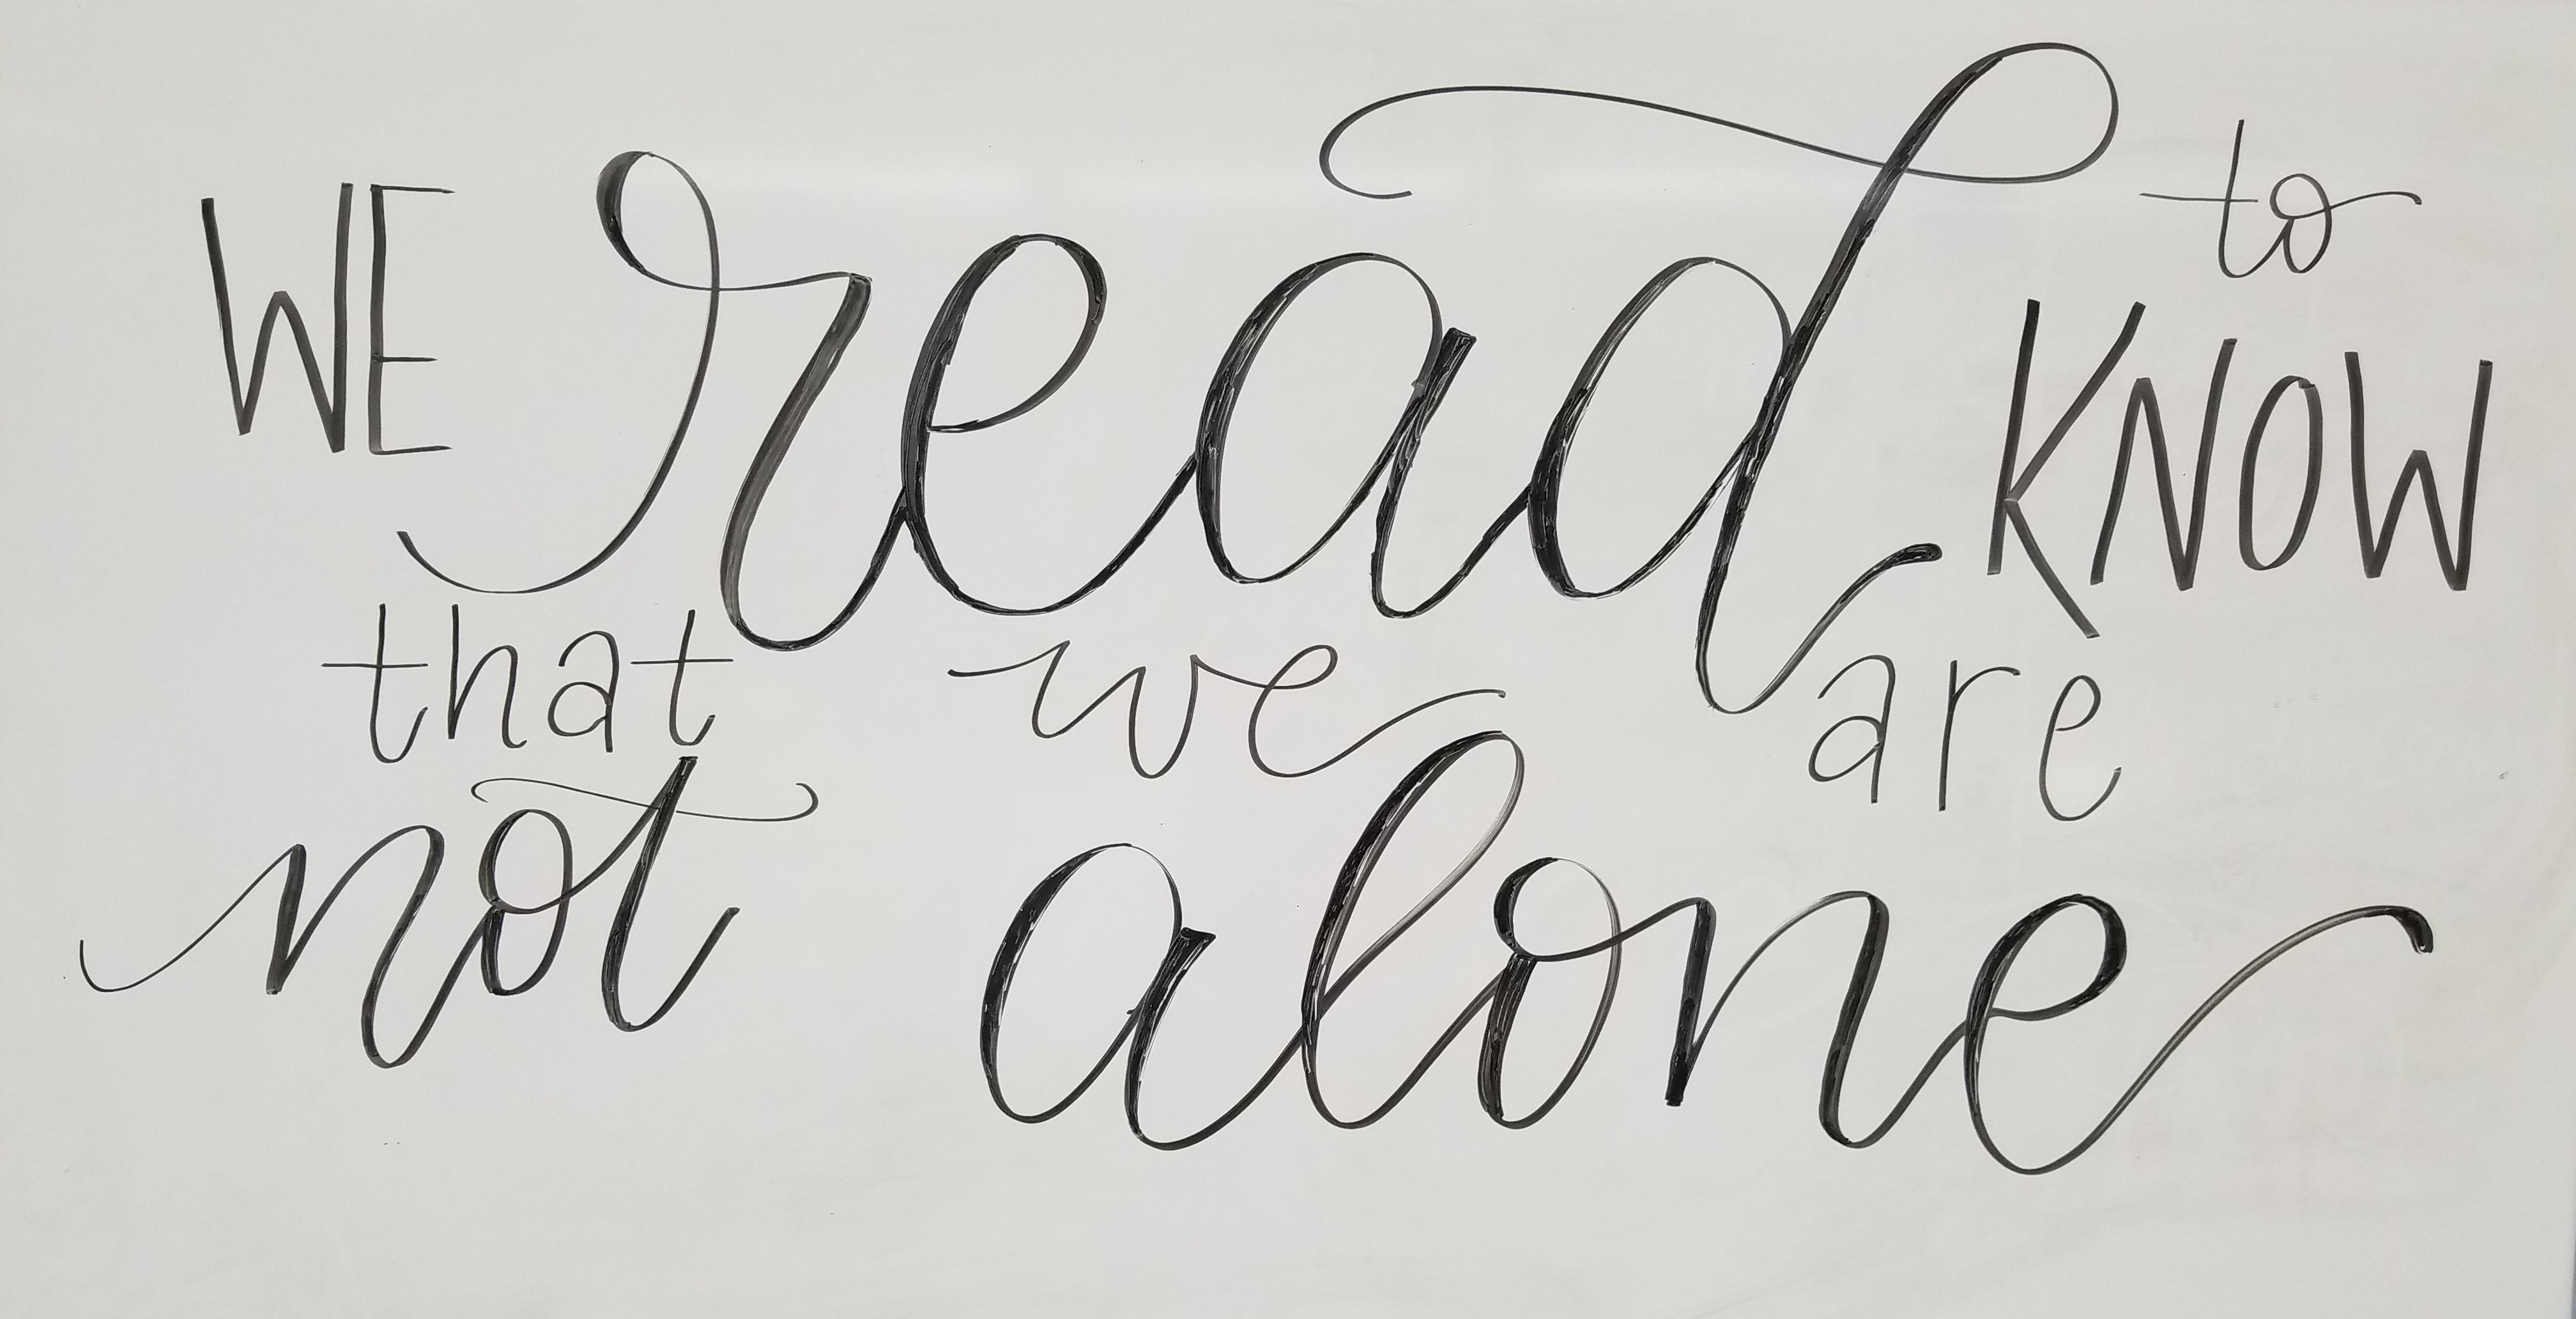 WE read to KNOW
that we are
not alone